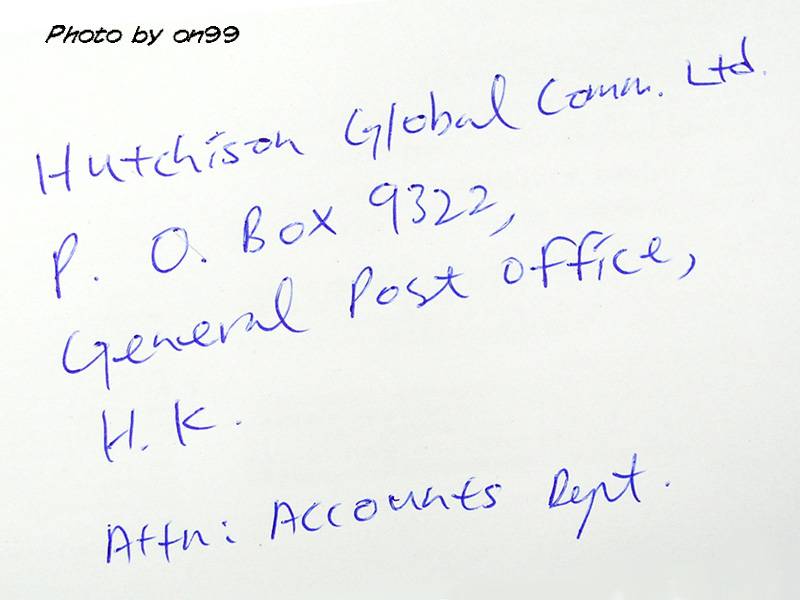 Photo by on99
Hutchison Global Comm. Ltd.
P. O. Box 9322,
General Post Office,
H. K.
Attn: Accounts Dept.